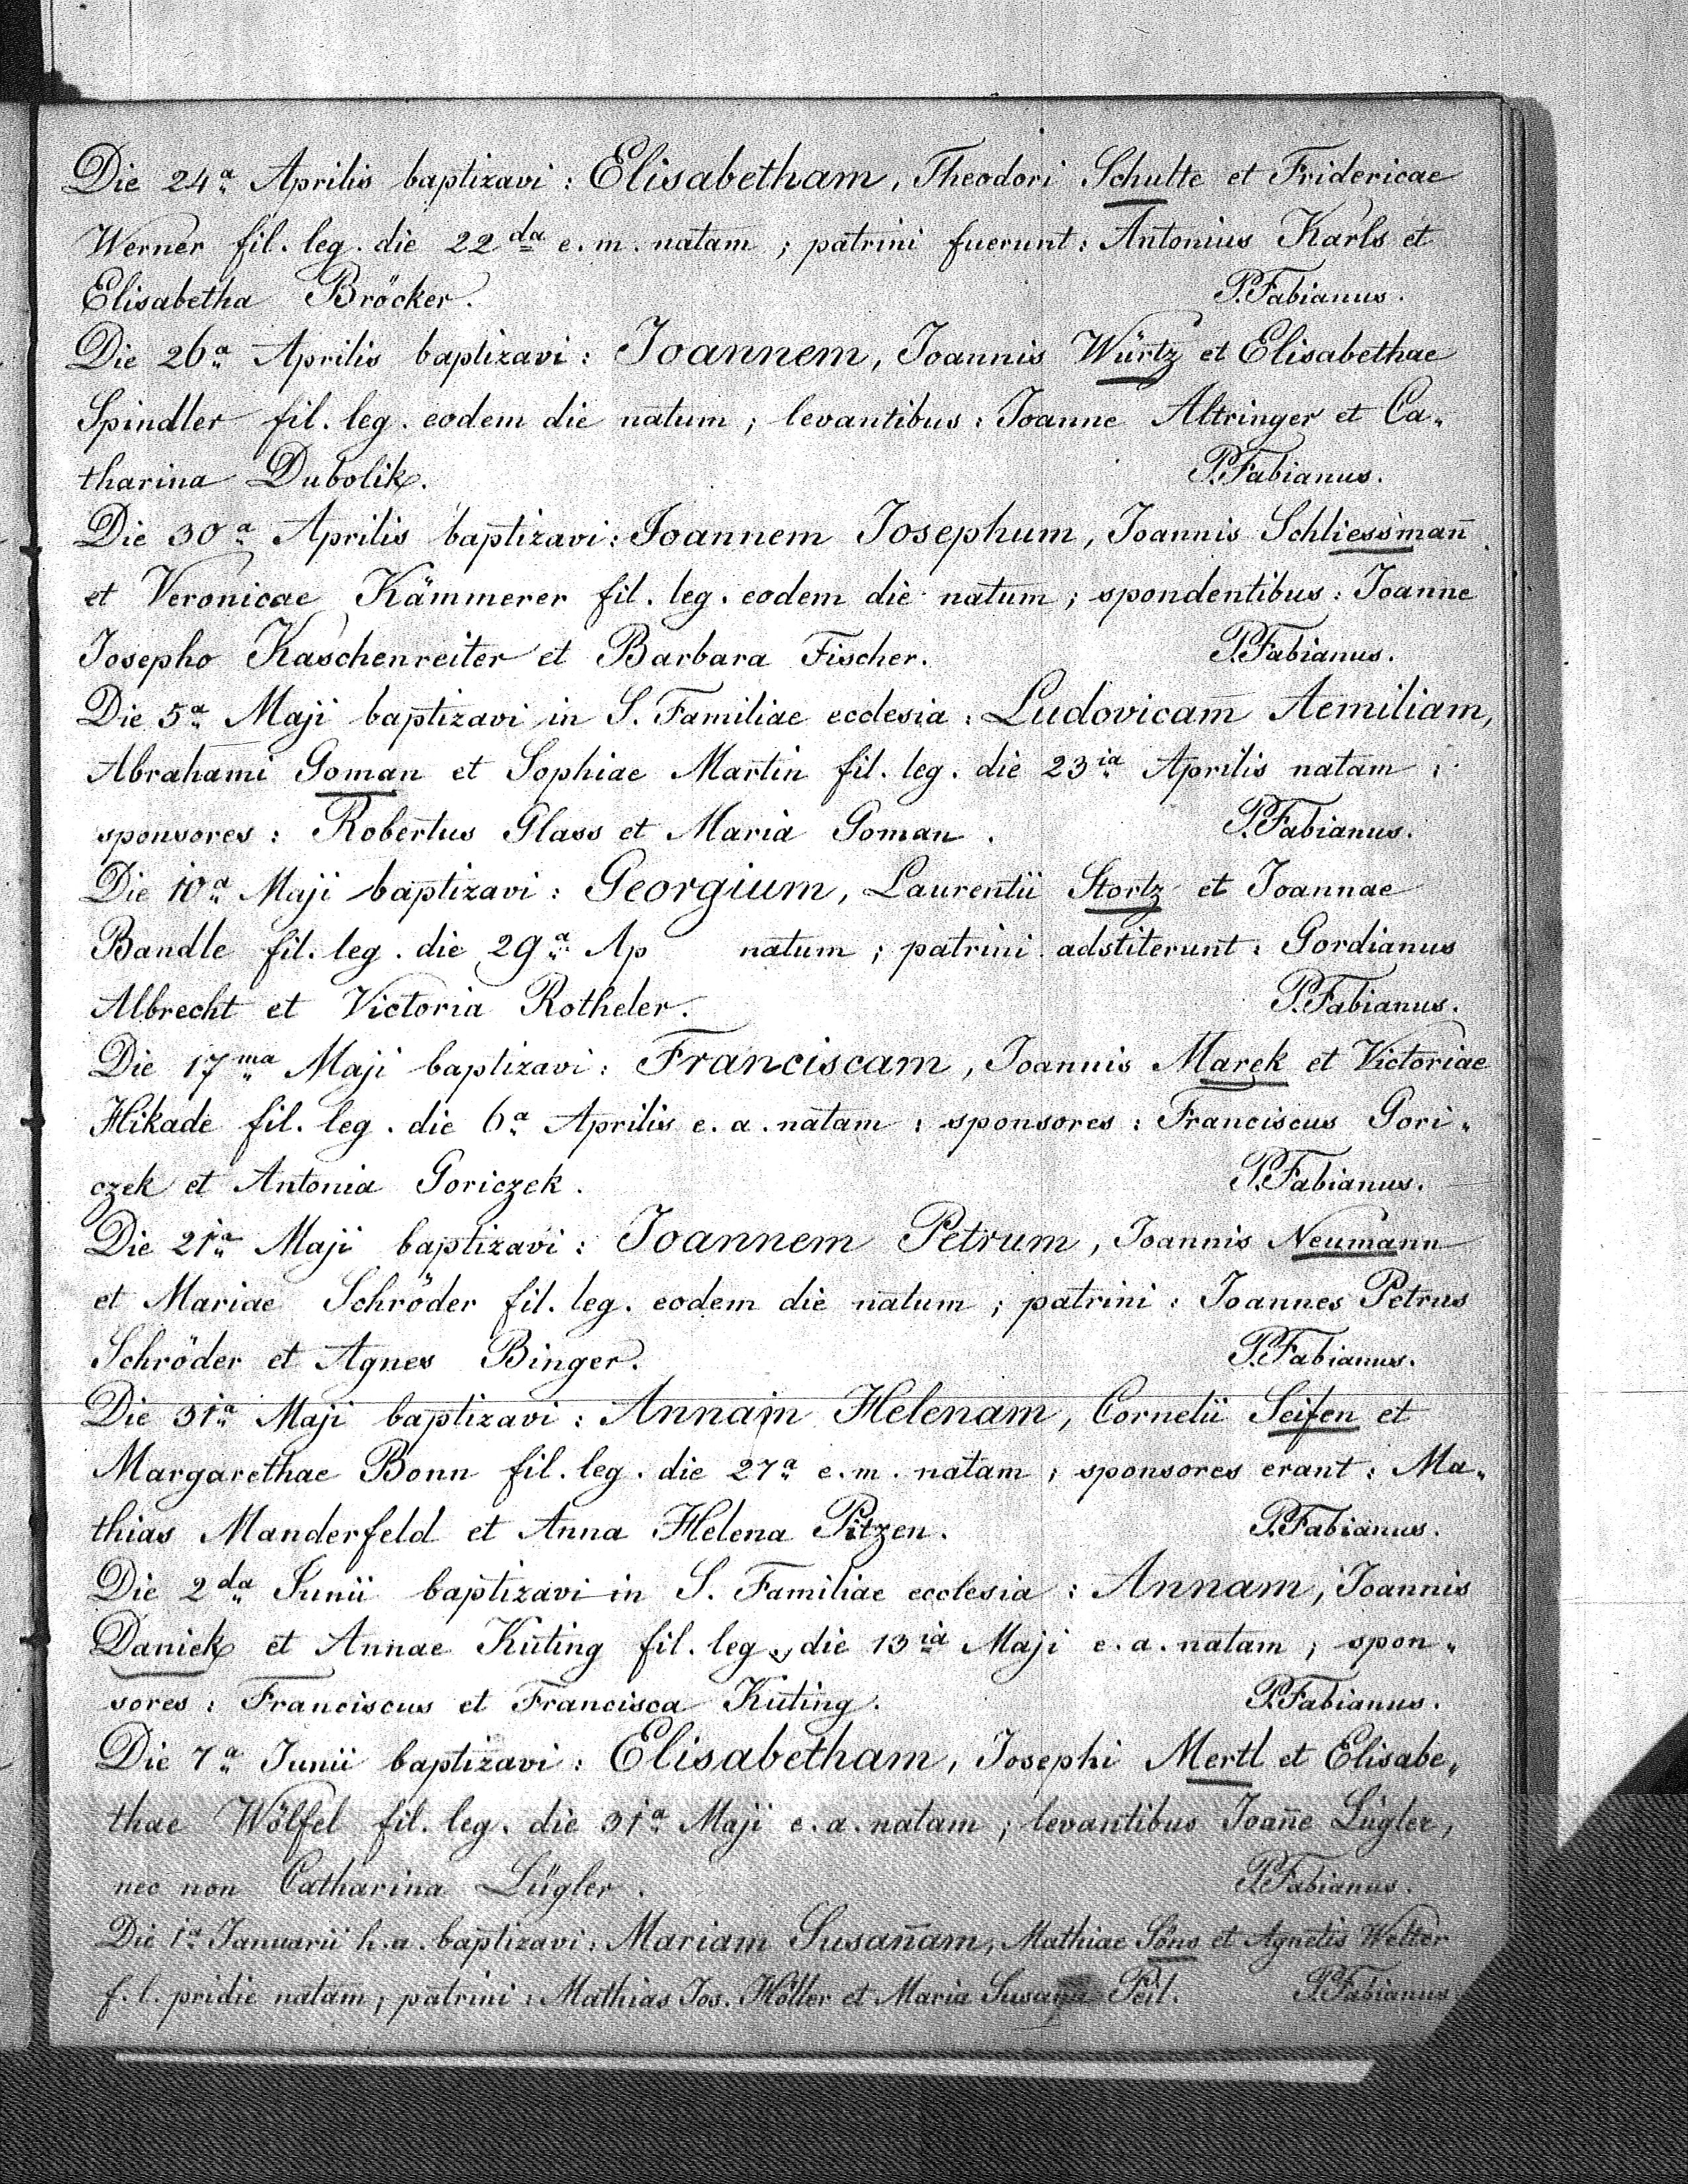 Die 24ª Aprilis baptizavi: Elisabetham, Theodori Schulte et Fridericae
Werner fil. leg. die 22da e. m. natam; patrini fuerunt: Antonius Karls et
Elisabetha Bröcker. P. Fabianus.
Die 26ª Aprilis baptizavi: Joannem, Joannis Würtz et Elisabethae
Spindler fil. leg. eodem die natum; levantibus: Joanne Altringer et Ca„
tharina Dubolik. P. Fabianus.
Die 30ª Aprilis baptizavi: Joannem Josephum, Joannis Schliessman̄
et Veronicae Kämmerer fil. leg. eodem die natum; spondentibus: Joanne
Josepho Kaschenreiter et Barbara Fischer. P. Fabianus.
Die 5ª Maji baptizavi in S. Familiae ecclesia: Ludovicam Aemiliam,
Abrahami Goman et Sophiae Martin fil. leg. die 23ia Aprilis natam;
sponsores: Robertus Glass et Maria Goman. P. Fabianus.
Die 10ª Maji baptizavi: Georgium, Laurentii Stortz et Joannae
Bandle fil. leg. die 29ª Ap natum; patrini adstiterunt: Gordianus
Albrecht et Victoria Rotheler. P. Fabianus.
Die 17ma Maji baptizavi: Franciscam, Joannis Marek et Victoriae
Hikade fil. leg. die 6ª Aprilis e. a. natam: sponsores: Franciscus Gori„
czek et Antonia Goriczek. P. Fabianus.
Die 21ª Maji baptizavi: Joannem Petrum, Joannis Neumann
et Mariae Schröder fil. leg. eodem die natum; patrini: Joannes Petrus
Schröder et Agnes Binger. P. Fabianus.
Die 31ª Maji baptizavi: Annam Helenam, Cornelii Seifen et
Margarethae Bonn fil. leg. die 27ª e. m. natam; sponsores erant: Ma„
thias Manderfeld et Anna Helena Pitzen. P. Fabianus.
Die 2da Junii baptizavi in S. Familiae ecclesia: Annam, Joannis
Daniek et Annae Küting fil. leg. die 13ia Maji e. a. natam; spon„
sores: Franciscus et Francisca Küting. P. Fabianus.
Die 7ª Junii baptizavi: Elisabetham, Josephi Mertl et Elisabe„
thae Wölfel fil. leg. die 31ª Maji e. a. natam; levantibus Joan̄e Lügler,
nec non Catharina Lügler. P. Fabianus.
Die 1ª Januarii h. a. baptizavi: Mariam Susan̄am, Mathiae Söns et Agnetis Welter
f. l. pridie natam; patrini: Mathias Jos. Höller et Maria Susana Peil. P. Fabianus